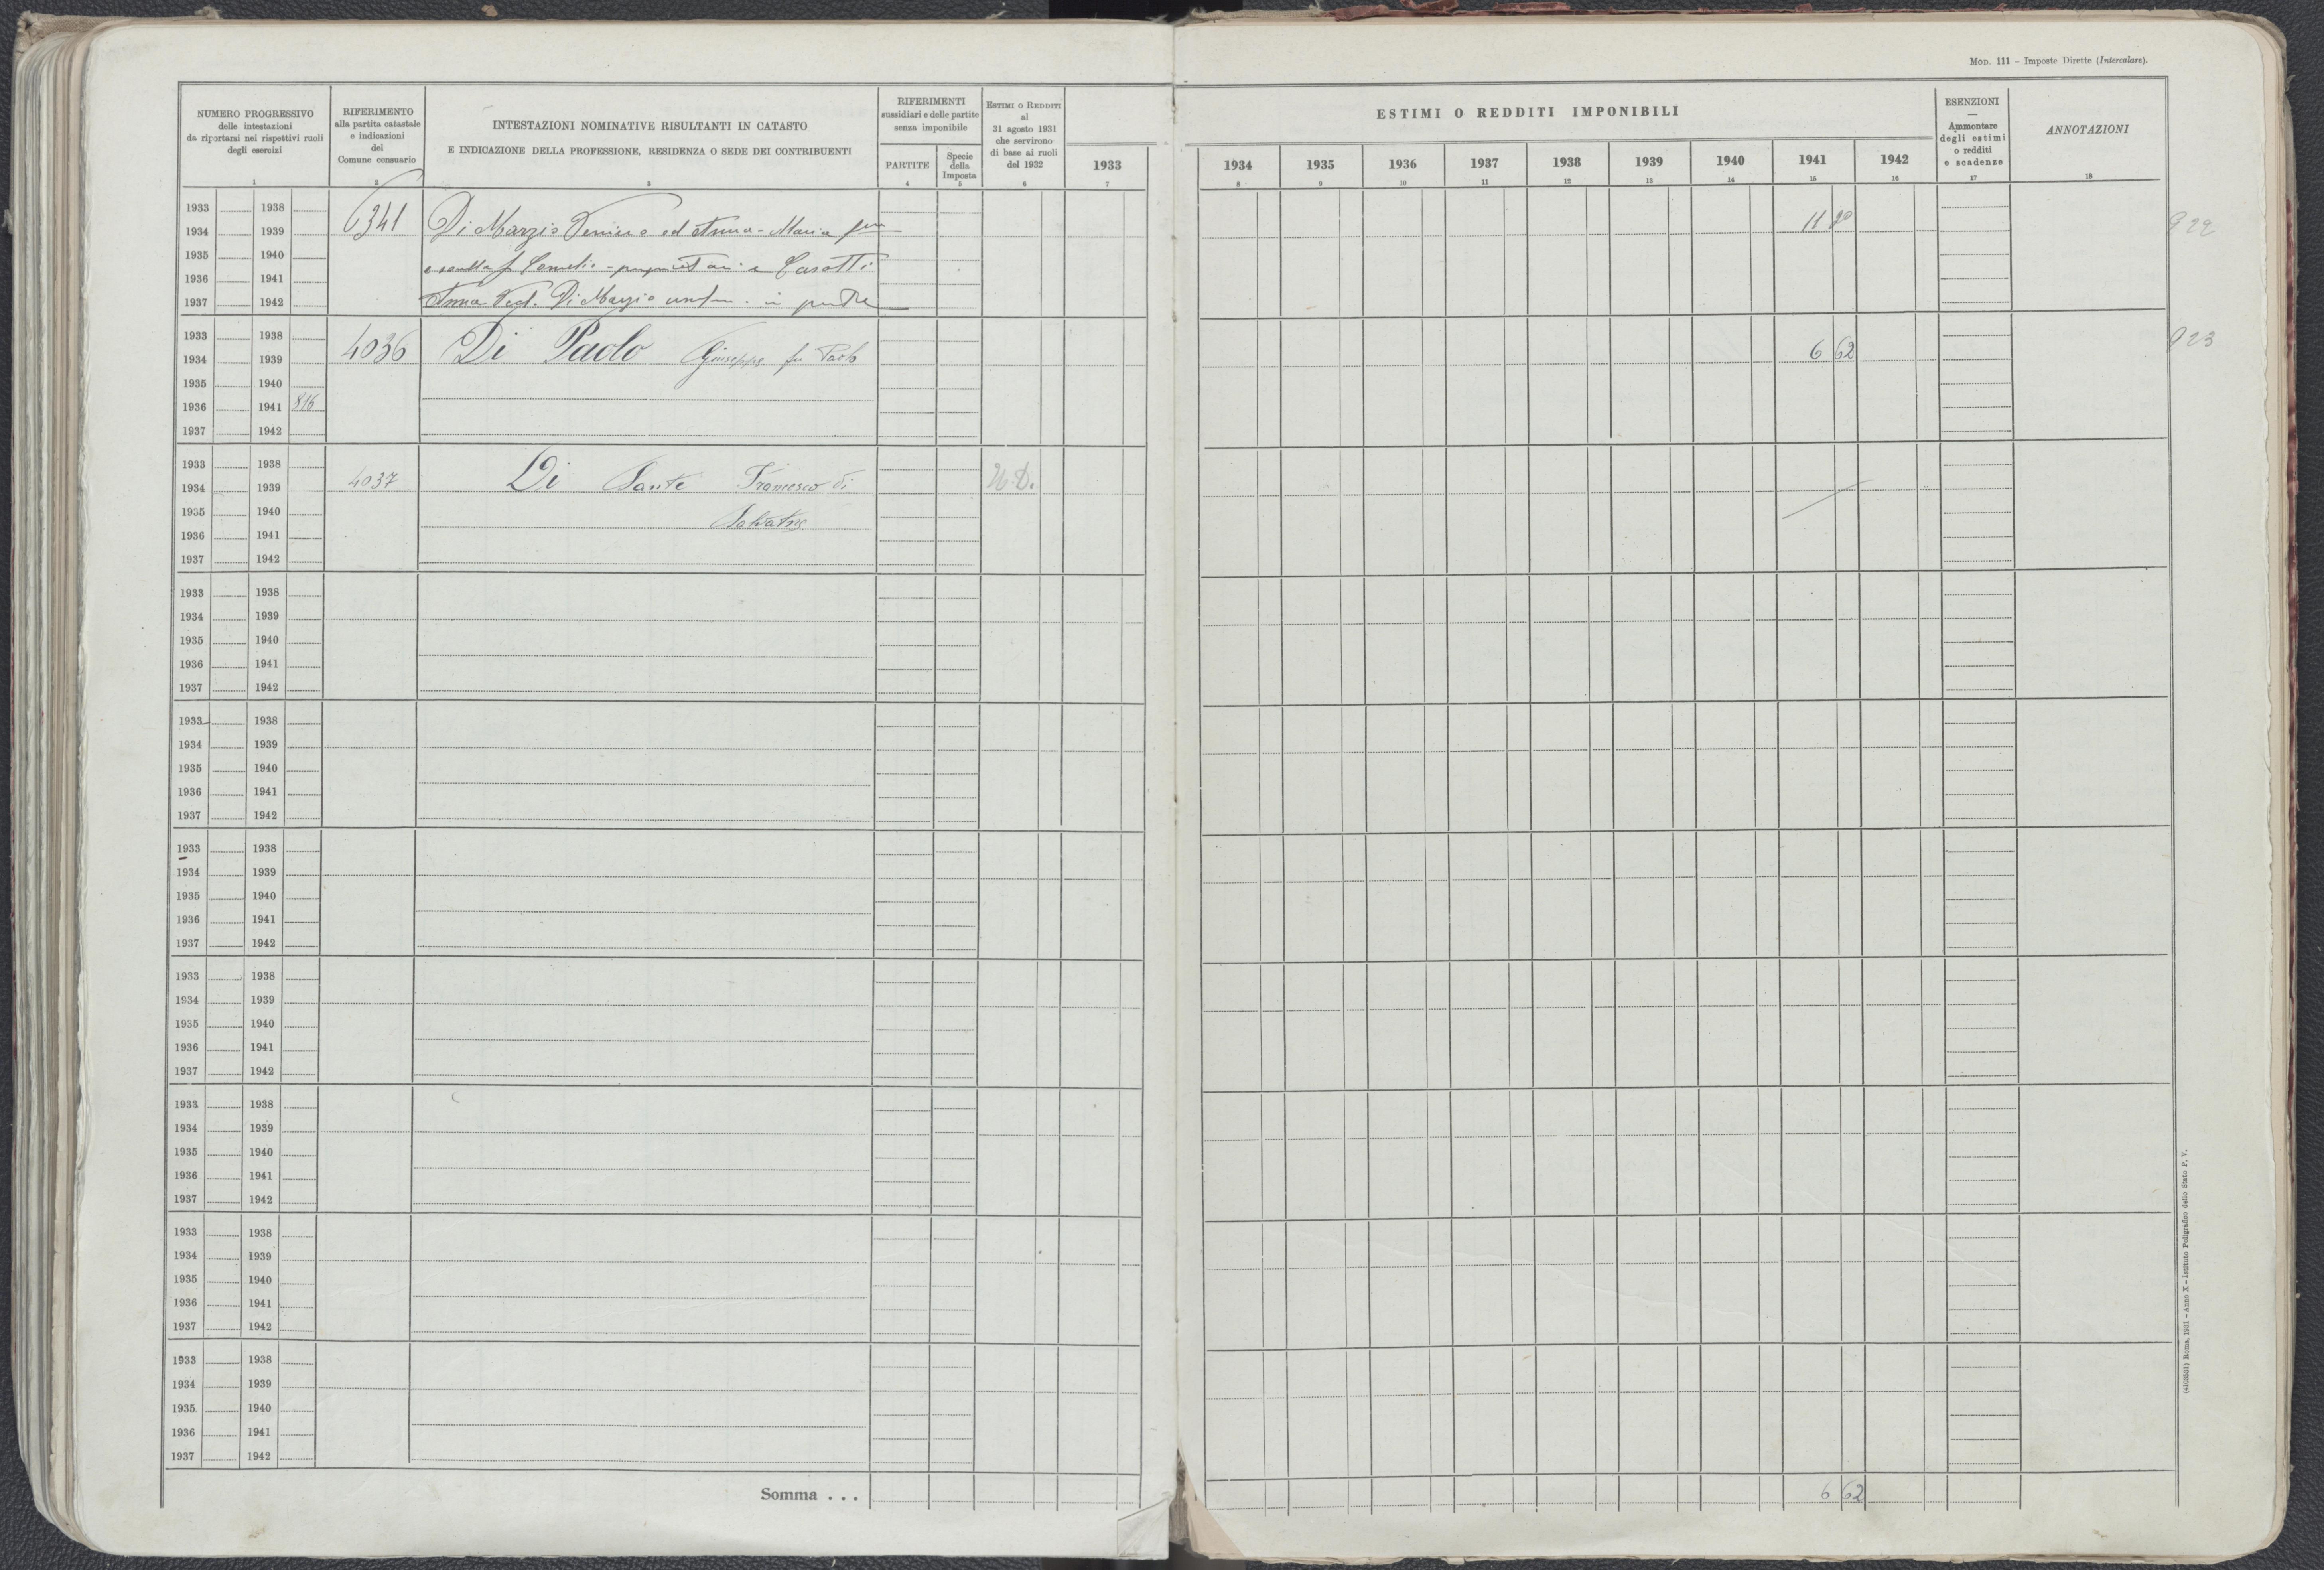 MOD. 111 - Imposte Dirette (Intercalare).
NUMERO PROGRESSIVO
delle intestazioni
da riportarsi nei rispettivi ruoli
degli esercizi
RIFERIMENTO
alla partita catastale
e indicazioni
del
Comune censuario
INTESTAZIONI NOMINATIVE RISULTANTI IN CATASTO
E INDICAZIONE DELLA PROFESSIONE, RESIDENZA O SEDE DEI CONTRIBUENTI
RIFERIMENTI
sussidiari e delle partite
senza imponibile
PARTITE
Specie
della
Imposta
ESTIMI O REDDITI
al
31 agosto 1931
che servirono
di base ai ruoli
del 1932
1933
ESTIMI O REDDITI IMPONIBILI
1934 1935 1936 1937 1938 1939 1940 1941 1942
ESENZIONI
—
Ammontare
degli estimi
o redditi
e scadenze
ANNOTAZIONI
1 2 3 4 5 6 7 8 9 10 11 12 13 14 15 16 17 18
1933 1938
1934 1939 6341 Di Marzio ed Anna-Maria 11 20 922
1935 1940
1936 1941
1937 1942 Anna Ved. Di Marzio
1933 1938
1934 1939 4036 Di Paolo Giuseppe fu Paolo 6 62 923
1935 1940
1936 1941 816
1937 1942
1933 1938
1934 1939 4037 Di Sante Francesco di
1935 1940 Salvatore
1936 1941
1937 1942
1933 1938
1934 1939
1935 1940
1936 1941
1937 1942
1933 1938
1934 1939
1935 1940
1936 1941
1937 1942
1933 1938
1934 1939
1935 1940
1936 1941
1937 1942
1933 1938
1934 1939
1935 1940
1936 1941
1937 1942
1933 1938
1934 1939
1935 1940
1936 1941
1937 1942
1933 1938
1934 1939
1935 1940
1936 1941
1937 1942
1933 1938
1934 1939
1935 1940
1936 1941
1937 1942
Somma . . . 6 62
Roma, 1931 - Anno X - Istituto Poligrafico dello Stato P. V.